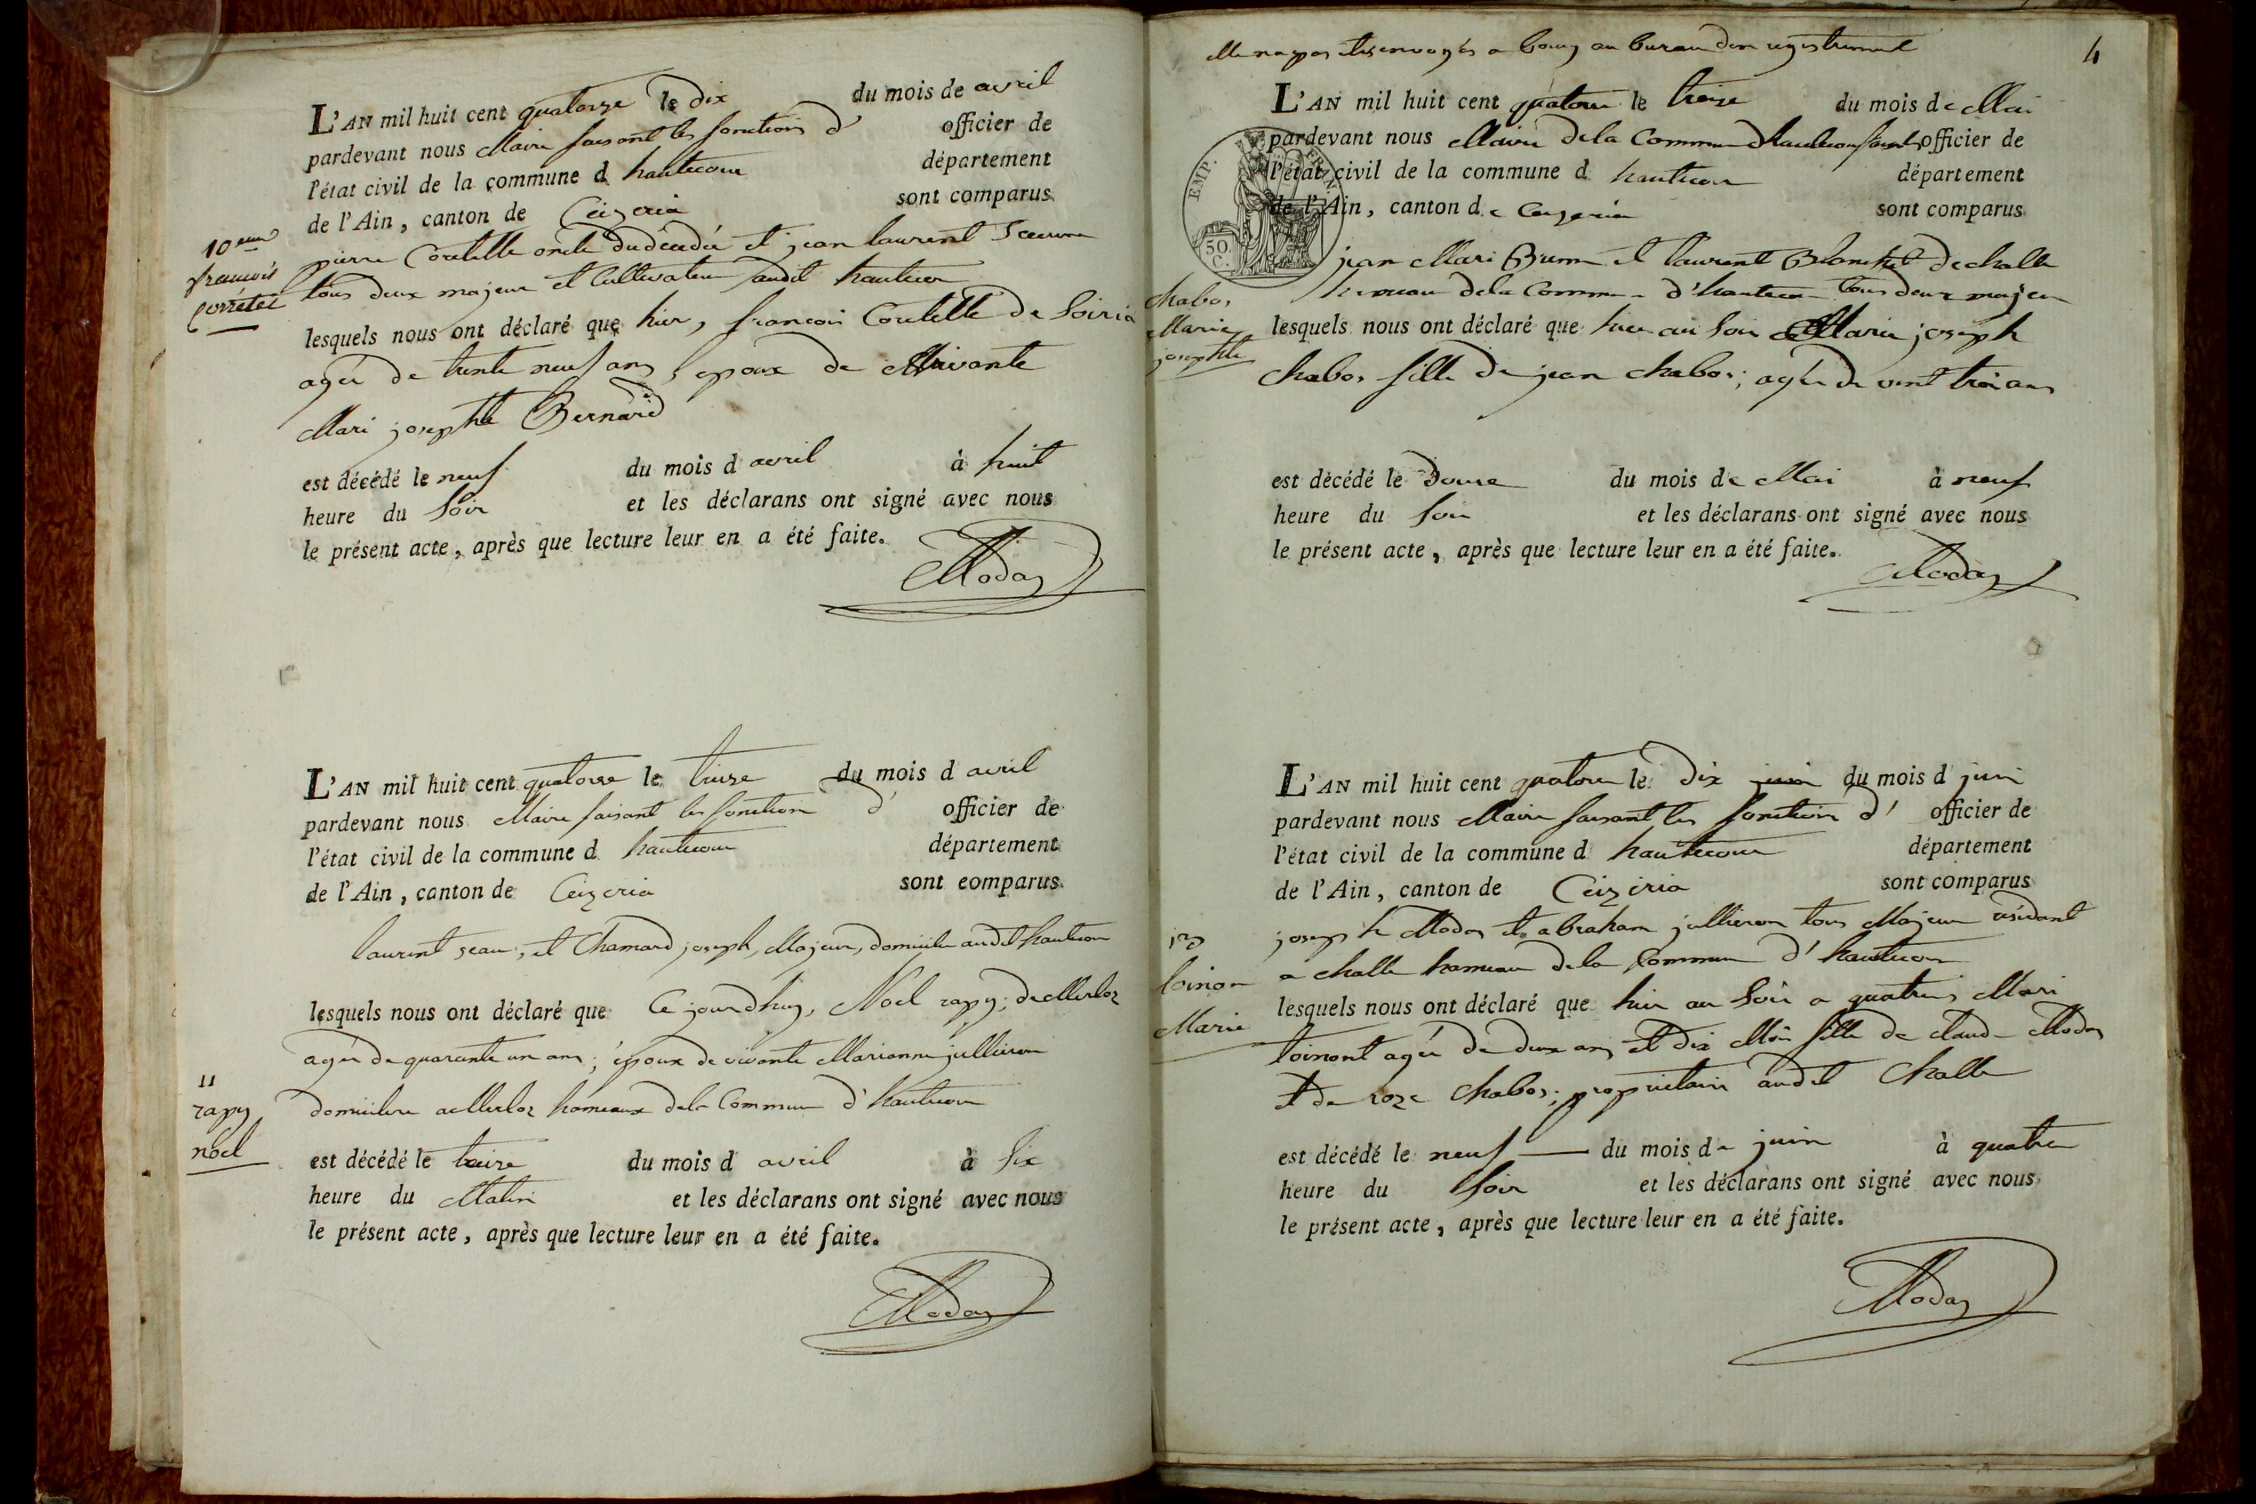 L'AN mil huit cent quatorze le dix du mois de avril
pardevant nous Maire faisant les fonctions d' officier de
l'état civil de la commune d hautecour département
de l'Ain, canton de Ceizeria sont comparus
10eme
françois
pierre oncle du décédée et jean laurent
tous deux majeur et Cultivateur audit hautecour
lesquels nous ont déclaré que hier, francois de
agée de trente neuf ans, epoux de vivante
Mari josephte Bernard
est décédé le neuf du mois d avril à huit
heure du soir et les déclarans ont signé avec nous
le présent acte, après que lecture leur en a été faite.
Modas
L'AN mil huit cent quatorze le treize du mois d avril
pardevant nous Maire faisant les fonction d' officier de
l'état civil de la commune d hautecour département
de l'Ain, canton de Ceizeria sont comparus
laurent jean, et Chamard joseph, Majeur, domicilie audit hautecour
lesquels nous ont déclaré que Ce jourdhuy, Noel rapy; de Merloz
agée de quarante un ans; époux de vivante Marianne jullieron
11
rapy
noel
domicilier a Merloz hameaux de la Commune d' hautecour
est décédé le treize du mois d avril à six
heure du Matin et les déclarans ont signé avec nous
le présent acte, après que lecture leur en a été faite.
Modas
4
elle na pas etes envoyés a bourg au bureau den registrement
L'AN mil huit cent quatorze le treize du mois de Mai
pardevant nous Maire de la Commune d'hautecour faisant officier de
l'état civil de la commune d hautecour département
de l'Ain, canton de Ceyzeria sont comparus
EMP. FRAN.
50 C.
jean Mari Brunet et laurent Blanchet de challe
hameau de la Commune d'hautecour tous deux majeur
chabos
Marie
josephte
lesquels nous ont déclaré que hier au soir Marie joseph
chabos fille de jean chabos; agée de vint trois ans
est décédé le Douze du mois de Mai à neuf
heure du soir et les déclarans ont signé avec nous
le présent acte, après que lecture leur en a été faite.
Modas
L'AN mil huit cent quatorze le dix juin du mois d juin
pardevant nous Maire faisant les fonction d' officier de
l'état civil de la commune d hautecour département
de l'Ain, canton de Ceizeria sont comparus
joseph Modas et abraham jullieron tous Majeur résidant
a challe hameau de la Commune d' hautecour
13
Marie
lesquels nous ont déclaré que hier au soir a quatres Mari
toinont agée de deux ans et dix Mois fille de claude Modas
et de roze chabos; propriétaire audit Challe
est décédé le neuf du mois de juin à quatre
heure du soir et les déclarans ont signé avec nous
le présent acte, après que lecture leur en a été faite.
Modas